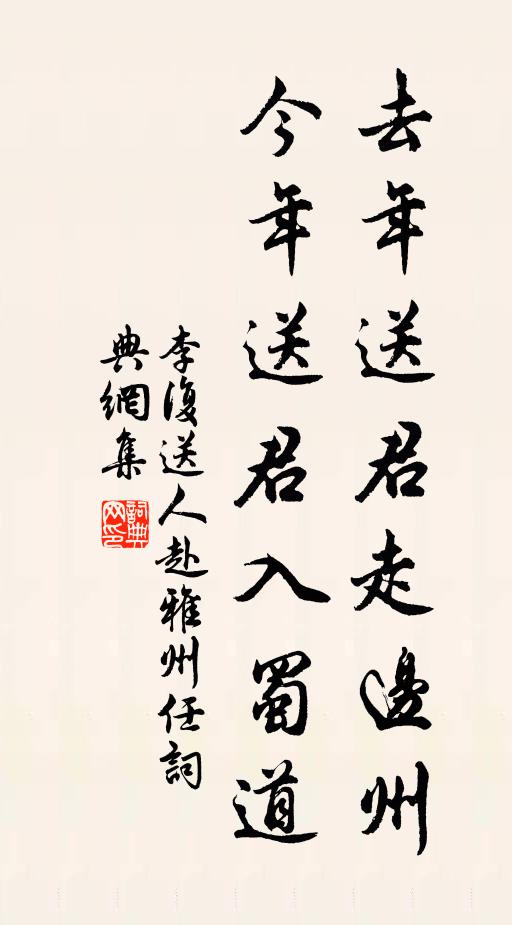 去年送君走邊州
今年送君入蜀道
李復送人赴雅州任詞
典網集
詞典
网印